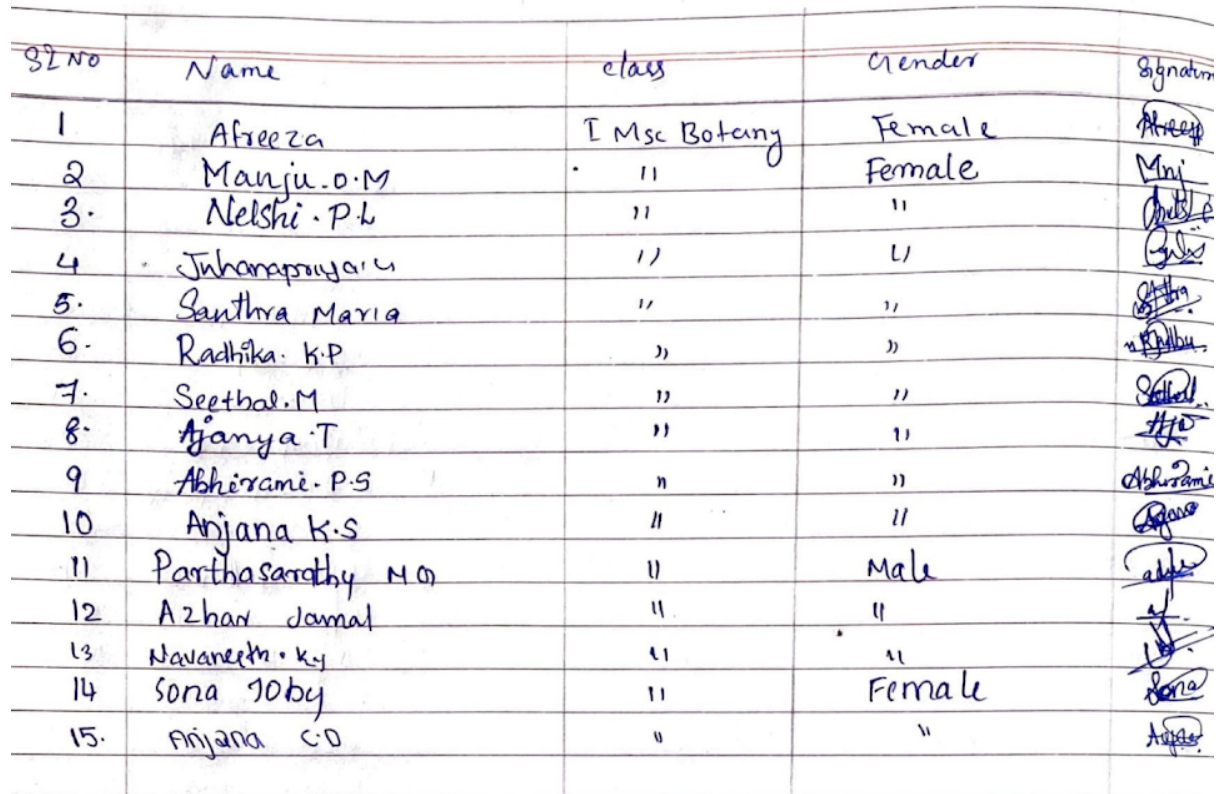 Sl No Name class Gender Signature
1 Afreeza I Msc Botany Female Afreeza
2 Manju.O.M " Female Mnj
3. Nelshi.P.L " "
4 " "
5. Santhra Maria " "
6. Radhika. K.P " "
7. Seethal.M " "
8. Ajanya.T " "
9 Abhirami.P.S " " Abhirami
10 Anjana K.S " "
11 Parthasarathy M " Male
12 Azhar Jamal " "
13 Navaneeth. Ky " "
14 Sona Joby " Female Sona
15. Anjana C.D " "